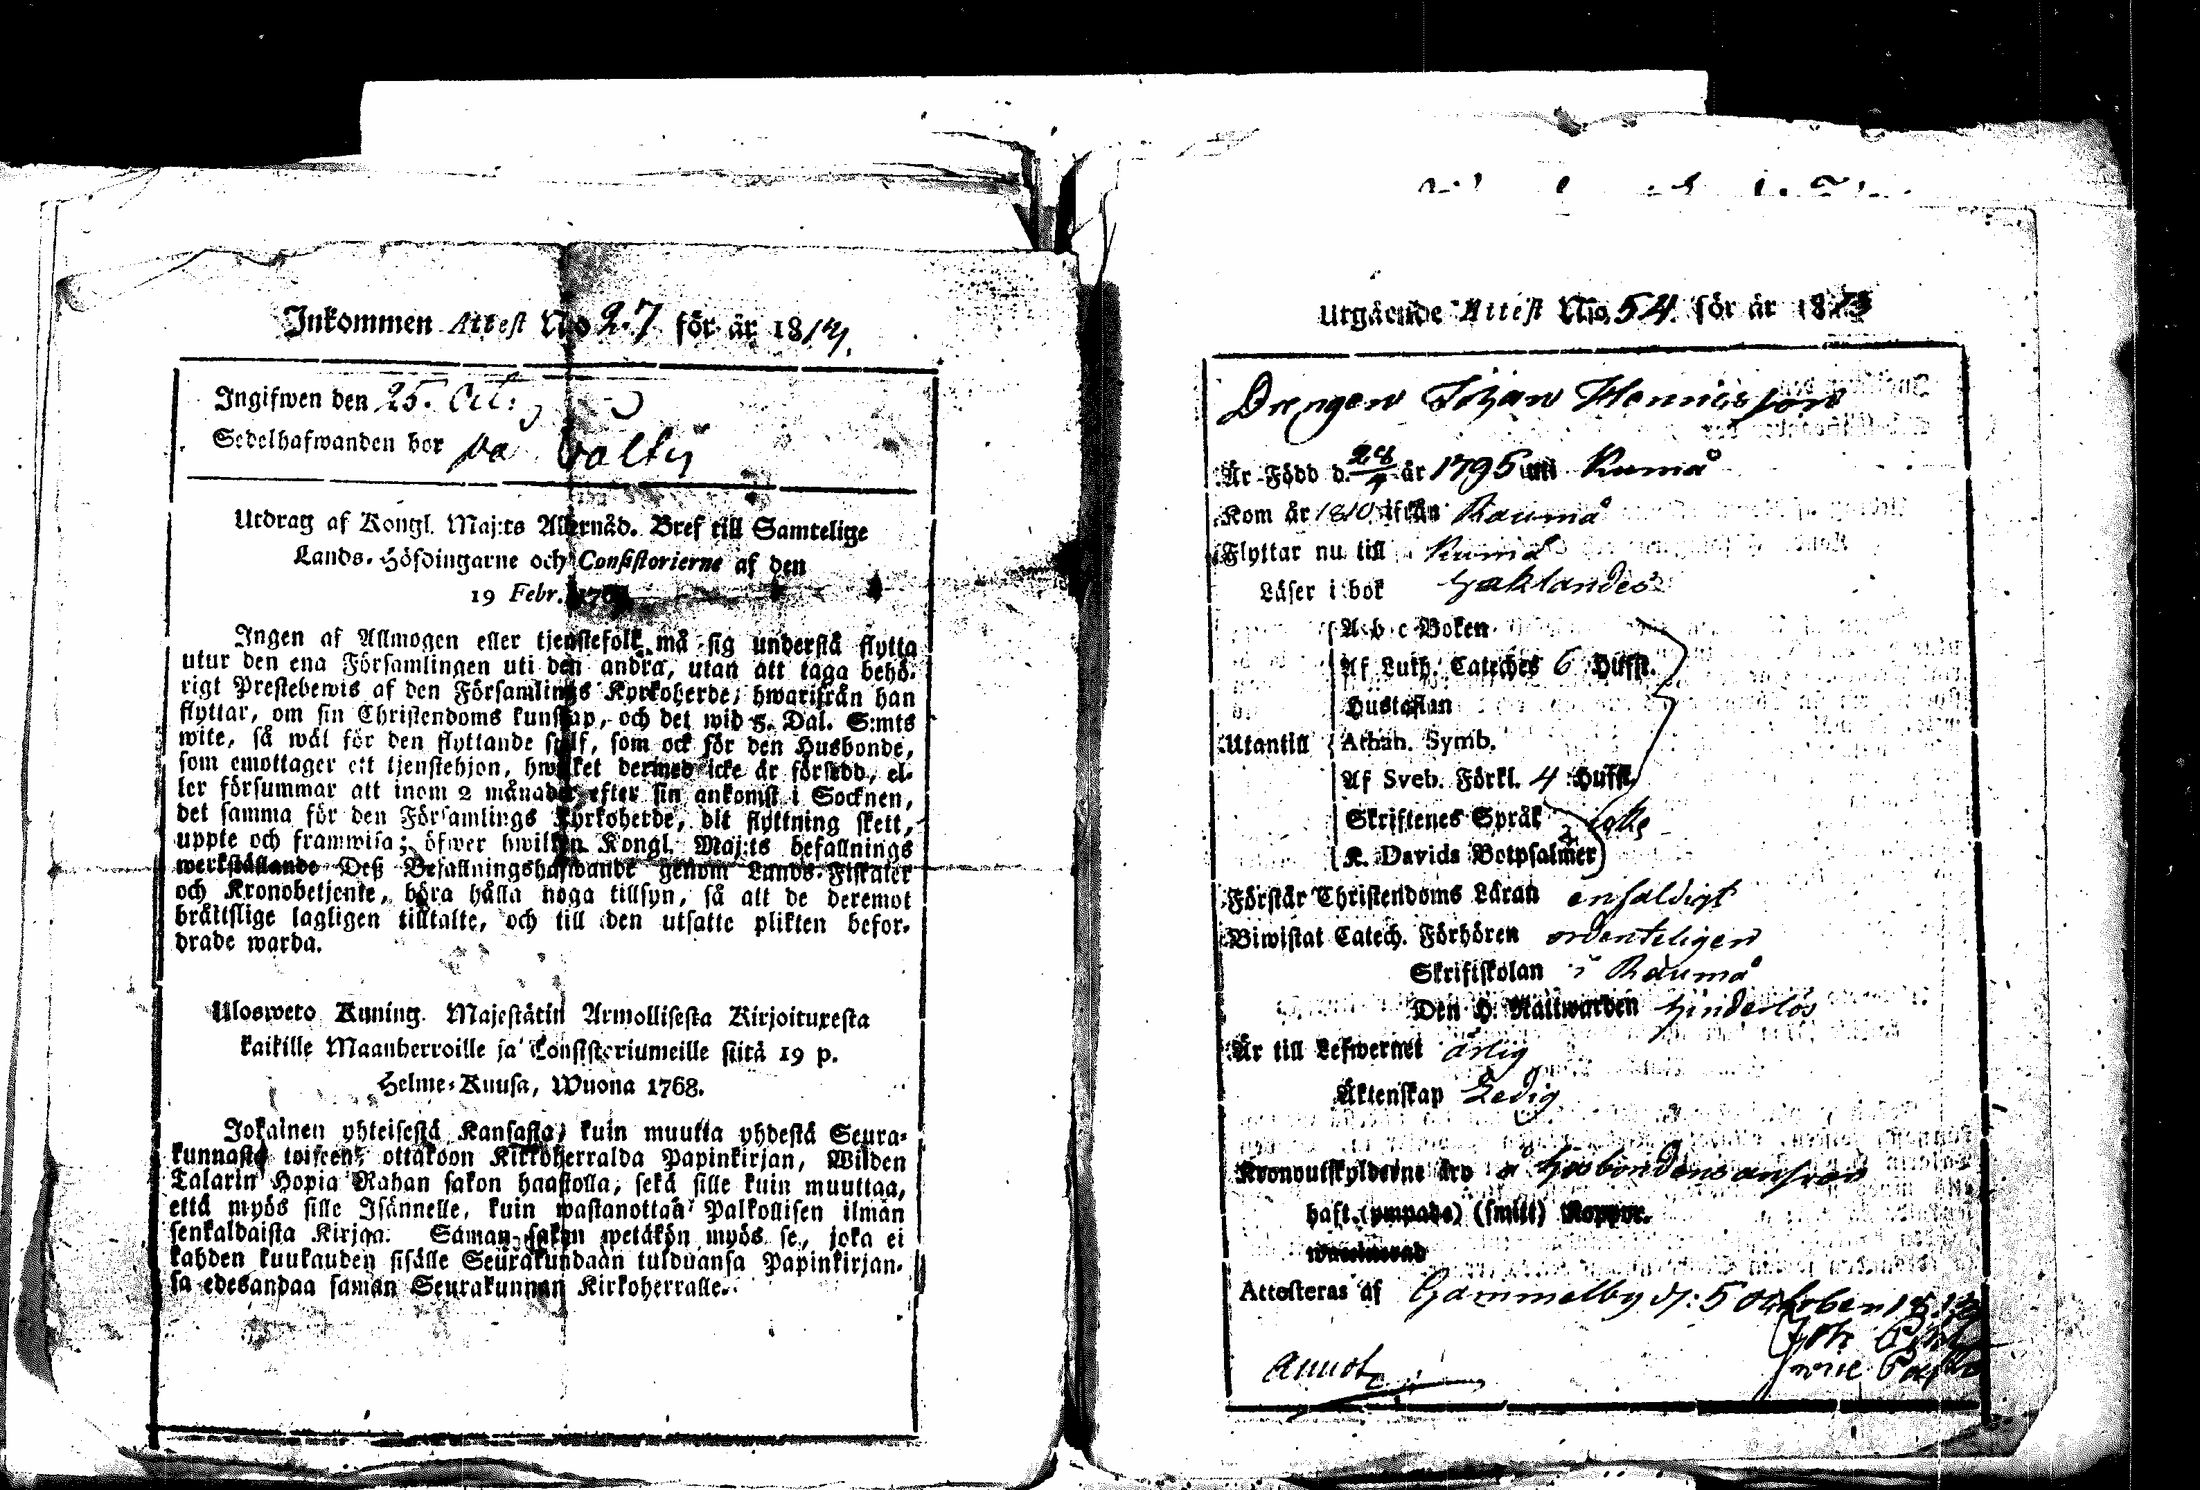 Inkommen Attest No 27 för år 1814.
Ingifwen den 25. Oct:
Sedelhafwanden bor på
Utdrag af Kongl. Maj:ts Allernåd. Bref till Samtelige
Lands-Höfdingarne och Consistorierne af den
19 Febr. 1768
Ingen af Allmogen eller tjenstefolk må sig understå flytta
utur den ena Församlingen uti den andra, utan att taga behö-
rigt Prestebewis af den Församlings Kyrkoherde, hwarifrån han
flyttar, om sin Christendoms kunskap, och det wid 5. Dal. S:mts
wite, så wäl för den flyttande sjelf, som ock för den Husbonde,
som emottager ett tjenstehjon, hwilket dermed icke är försedd, el-
ler försummar att inom 2 månader efter sin ankomst i Socknen,
det samma för den Församlings Kyrkoherde, dit flyttning skett,
uppte och framwisa; öfwer hwilken Kongl. Maj:ts befallnings
werkställande Deß Befallningshafwande genom Lands-Fiskaler
och Kronobetjente, böra hålla noga tillsyn, så att de deremot
bråttslige lagligen tilltalte, och till den utsatte plikten befor-
drade warda.
Ulosweto Kuning. Majestätin Armollisesta Kirjoituxesta
kaikille Maanherroille ja Consistoriumeille siitä 19 p.
Helme-Kuusa, Wuona 1768.
Jokainen yhteisestä Kansasta, kuin muutta yhdestä Seura-
kunnasta toiseen, ottakoon Kirkkoherralda Papinkirjan, Wijden
Talarin Hopia Rahan sakon haastolla, sekä sille kuin muuttaa,
että myös sille Isännelle, kuin wastanottaa Palkollisen ilman
senkaldaista Kirjaa. Saman sakon wetäkön myös se, joka ei
kahden kuukauden sisälle Seurakundaan tulduansa Papinkirjan-
sa edesandaa saman Seurakunnan Kirkoherralle.
Utgående Attest No 54. för år 1813
Drengen Johan Hennicsson
Är Född d. 28/7 år 1795 uti Kumå
Kom år 1810 ifrån Raumå
Flyttar nu till Kumå
Läser i bok
A b c Boken
Af Luth. Cateches 6 Hufst.
Hustaflan
Utantill Athan. Symb.
Af Sveb. Förkl. 4 Hufst.
Skriftenes Språk
K. Davids Botpsalmer
Förstår Christendoms Läran enfaldigt
Biwistat Catech. Förhören ordenteligen
Skriftskolan i Raumå
Den H. Nattwarden hinderlös
Är till Lefwernet ärlig
Äktenskap Ledig
Kronoutskylderne äro å Husbondens answar
haft (ympade) (smitt) Koppor.
waccinerad
Attesteras af Gammelby d: 5 october 1813